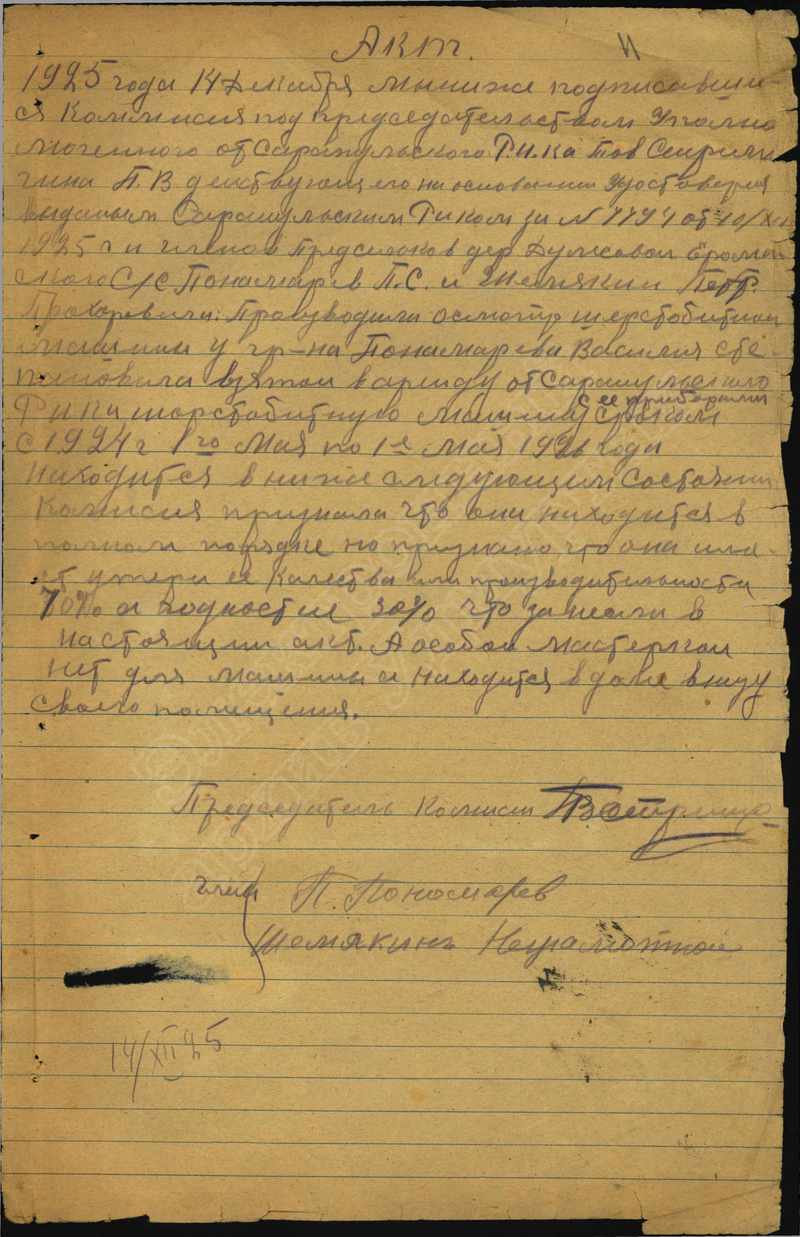 Акт.
1925 года 14 Декабря мы ниже подписавши-
ся Коммисия под председательством Уполно
моченного от Сарапульского Р.И.Ка тов
гина П.В действующего на основании Удостоверия
выданым Сарапульским Риком за № 7794 от 10/XII
1925 г и членов Председков дер Дулесовой
ского С/С Понамарев П.С. и Шемякин Петр.
Прохорович: Производили осмотр шерстобитной
машины у гр-на Понамарева Василия Сте-
пановича взятой в аренду от Сарапульского
с ее приборами
РИКа шорстобитную машину сроком
с 1924 г 1го Мая по 1е Мая 1926 года
находится в ниже следующим состоянии
Комисия признала что она находится в
полном порядке но признано что она име-
ет утери ее качества или производительности
70% а годностие 30% что занесли в
настоящий акт. А особой мастерской
нет для машины а находится в доме внизу
своего помещения.
Председатель Комисии
члены П. Пономарев
Шемякинъ Неграмотной
14/XII 25